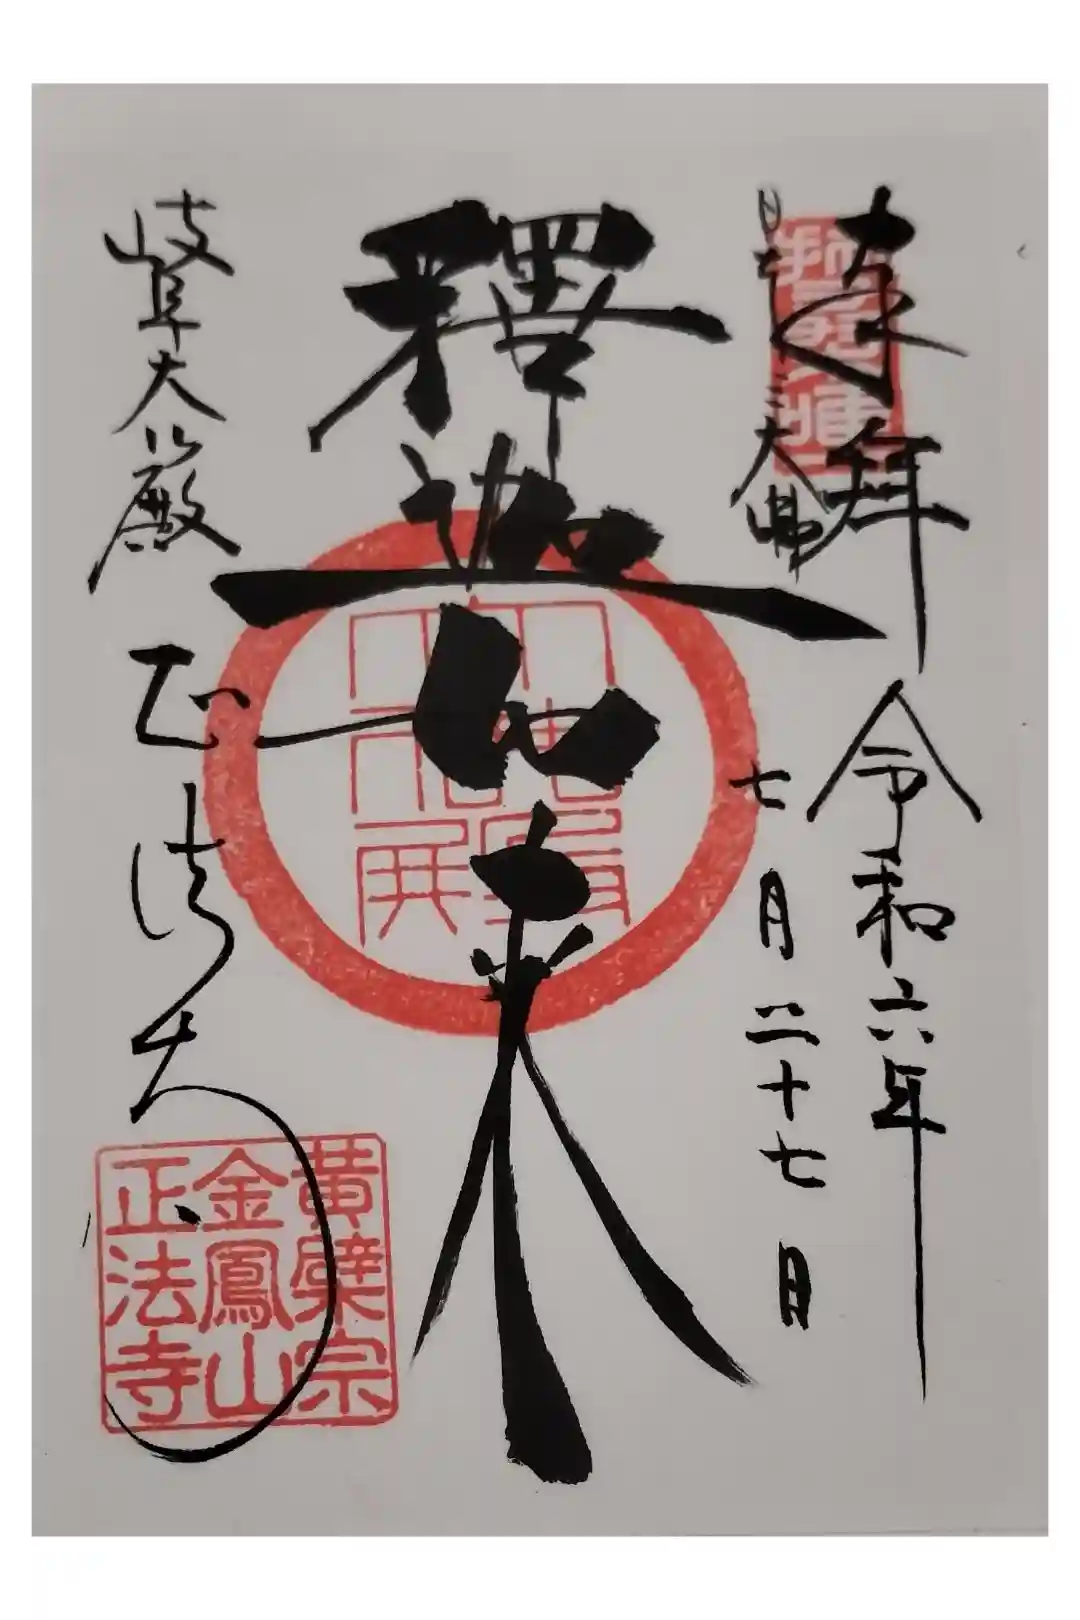 奉拝
日本三大佛
令和六年
七月二十七日
釋迦如来
岐阜大仏殿
正法寺
黄檗宗
金鳳山
正法寺